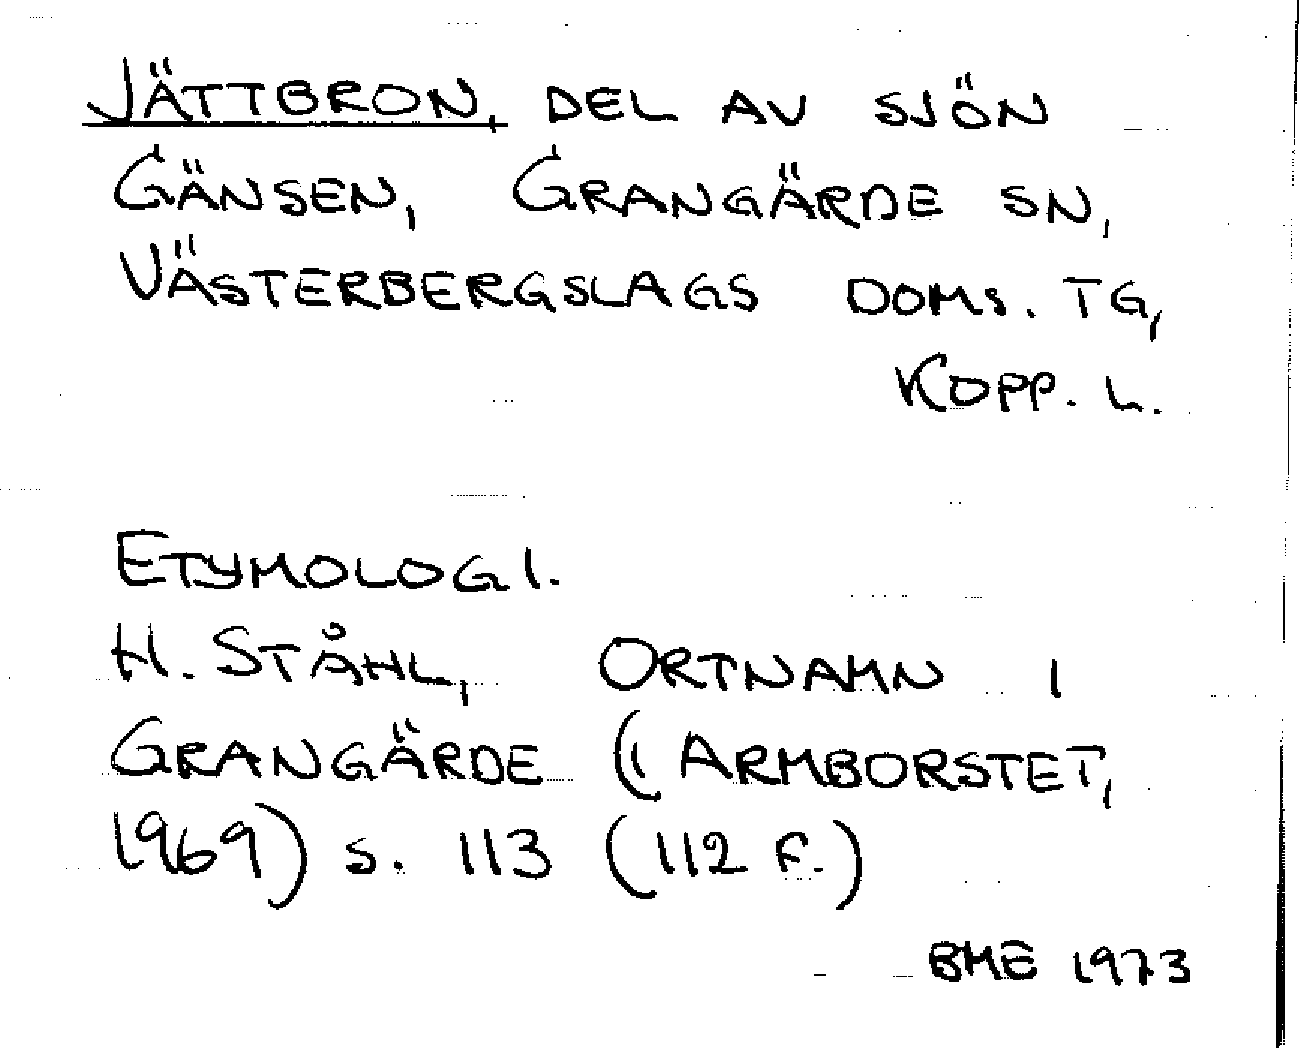 JÄTTBRON, DEL AV SJÖN
GÄNSEN, GRANGÄRDE SN,
VÄSTERBERGSLAGS DOMS. TG,
KOPP. L.
ETYMOLOGI.
H. STÅHL, ORTNAMN I
GRANGÄRDE (I ARMBORSTET,
1969) S. 113 (112 F.)
BME 1973